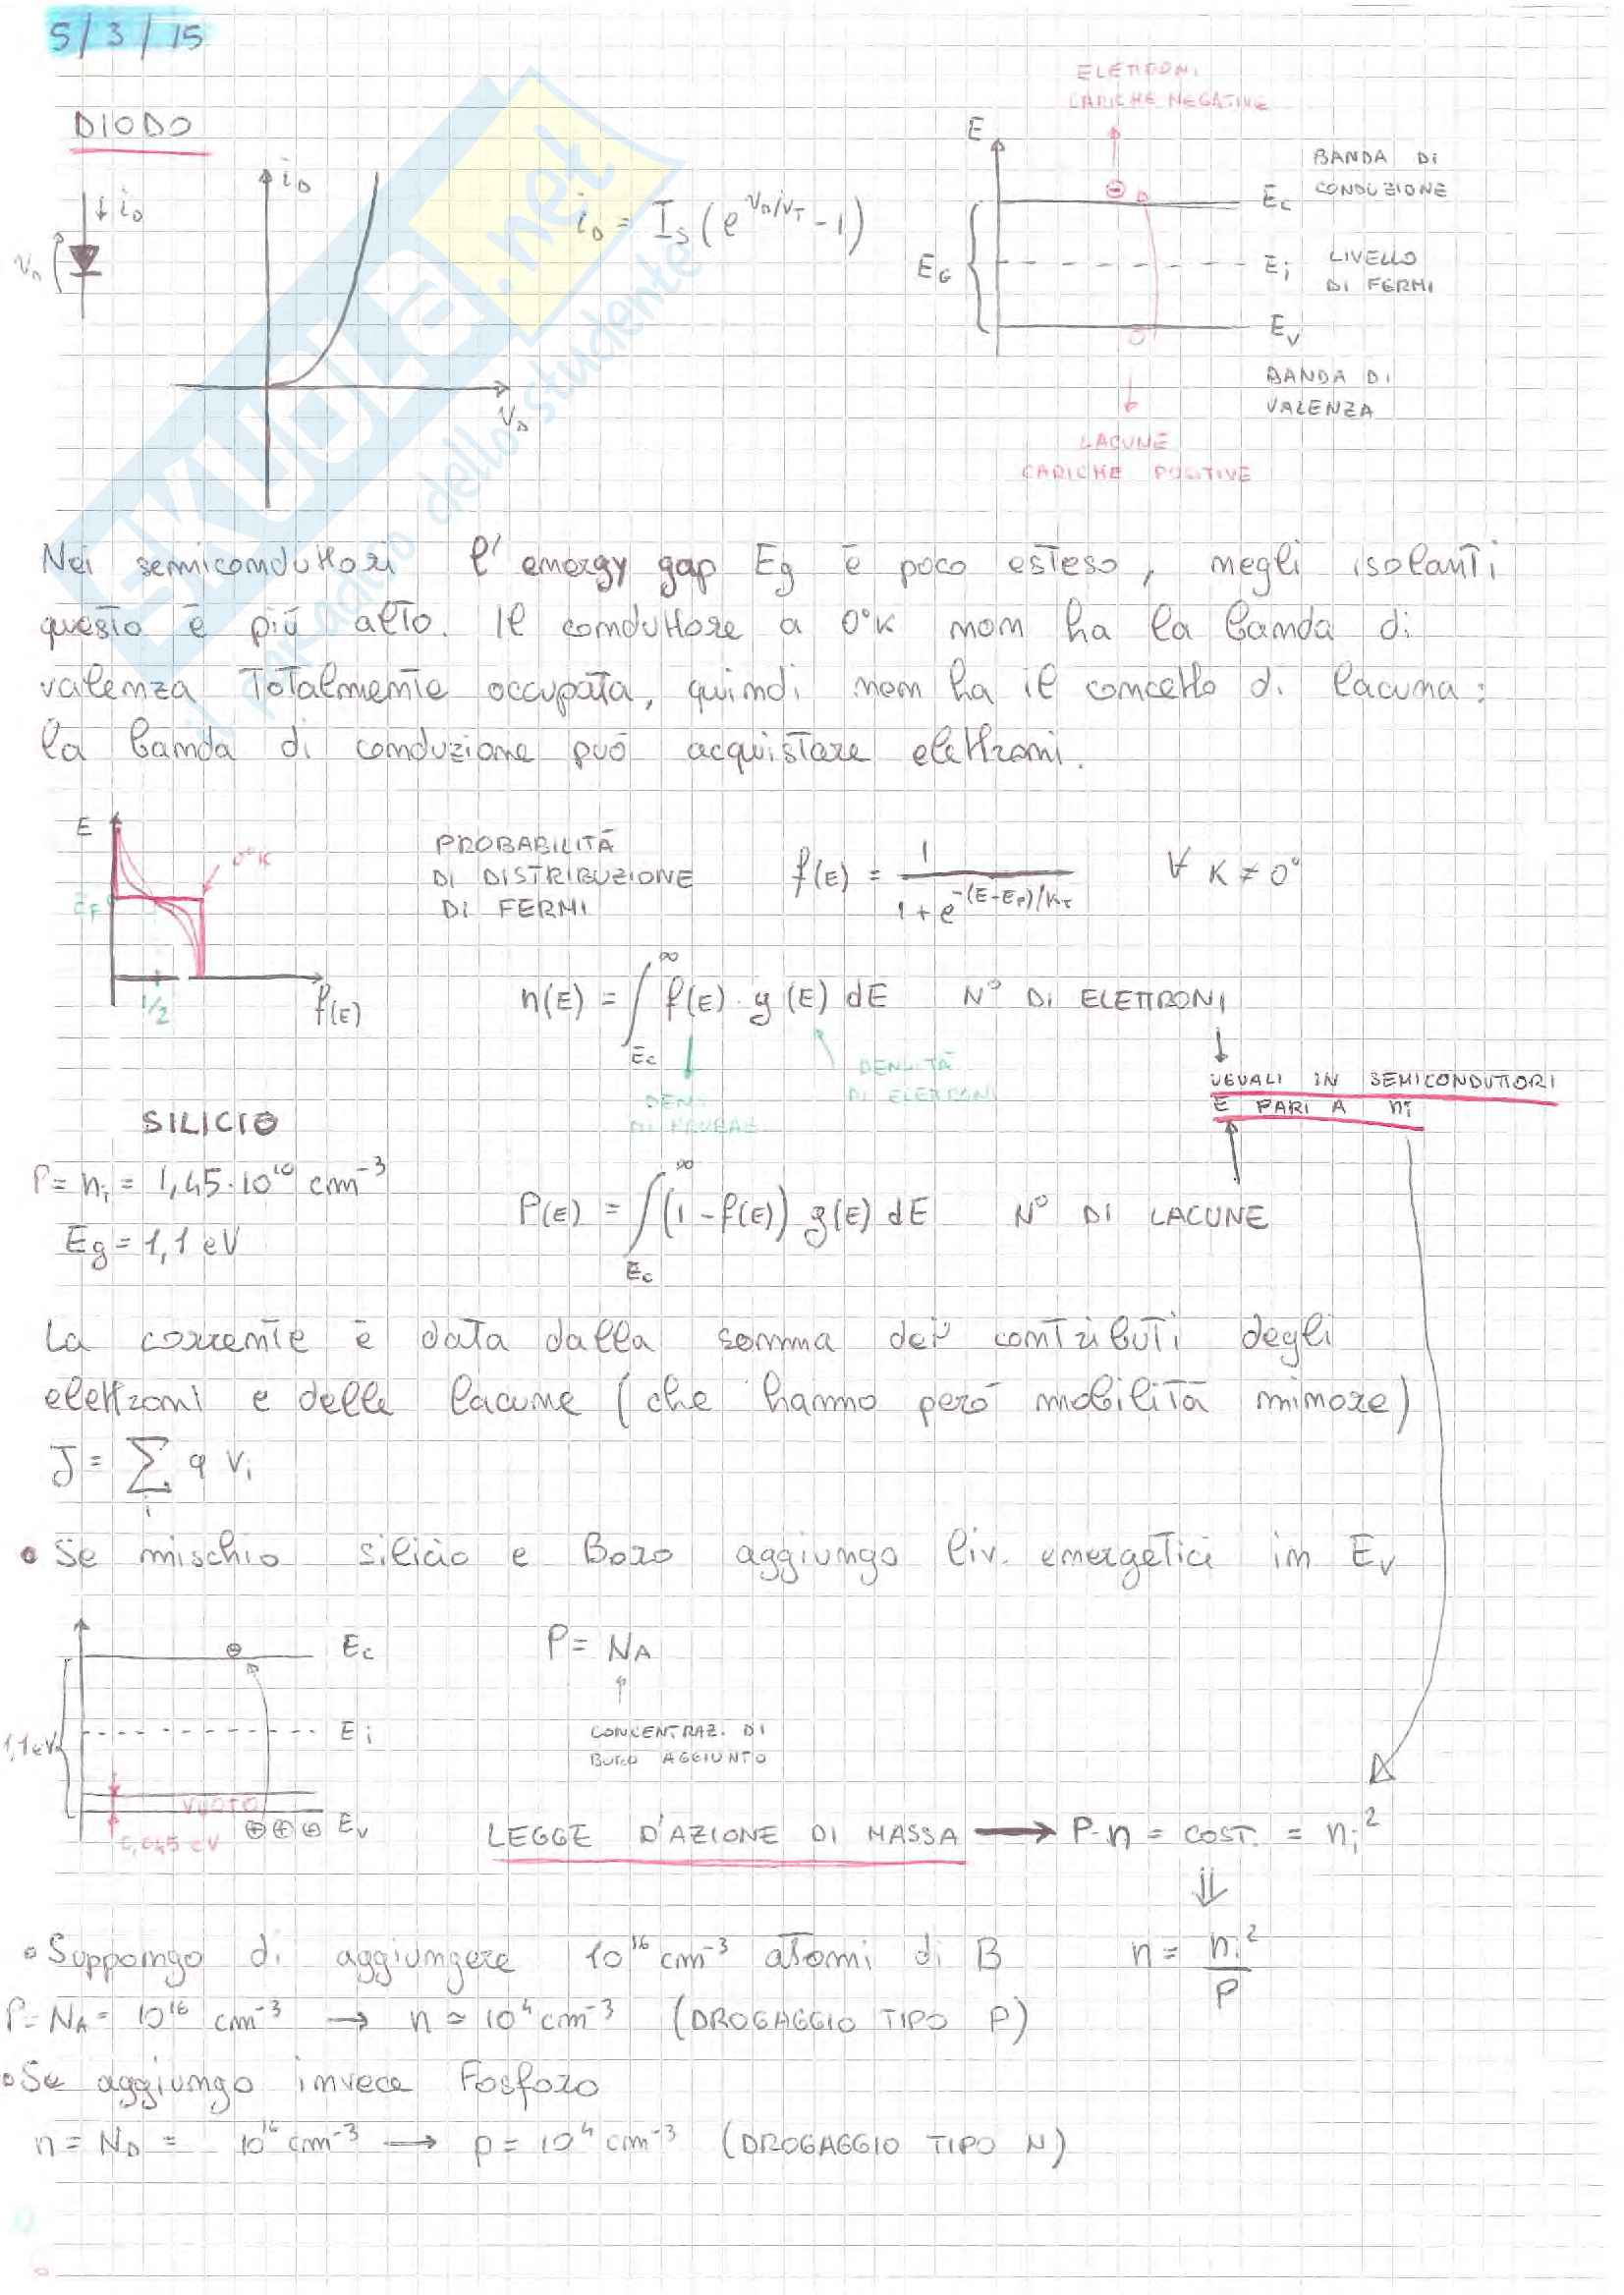 5/3/15
DIODO
i_D
v_D
i_D
V_D
i_D = I_S (e^{V_D/V_T} - 1)
ELETTRONI
CARICHE NEGATIVE
E
BANDA DI
CONDUZIONE
E_c
E_G
E_i
LIVELLO
DI FERMI
E_v
BANDA DI
VALENZA
LACUNE
CARICHE POSITIVE
SKUOLA.net
il paradiso dello studente
Nei semiconduttori l'energy gap Eg è poco esteso, negli isolanti
questo è più alto. Il conduttore a 0°K non ha la banda di
valenza totalmente occupata, quindi non ha il concetto di lacuna:
la banda di conduzione può acquistare elettroni.
E
0°K
E_F
1/2
f(E)
PROBABILITÀ
DI DISTRIBUZIONE
DI FERMI
f(E) = 1 / (1 + e^{-(E-E_F)/K_T}) ∀ K ≠ 0°
n(E) = ∫_{E_c}^{∞} f(E) · g(E) dE N° DI ELETTRONI
DENSITÀ
DI ELETTRONI
DENS.
DI PROBAB.
UGUALI IN SEMICONDUTTORI
E PARI A n_i
SILICIO
P = n_i = 1,45·10^{10} cm^{-3}
Eg = 1,1 eV
P(E) = ∫_{E_c}^{∞} (1 - f(E)) g(E) dE N° DI LACUNE
La corrente è data dalla somma dei contributi degli
elettroni e delle lacune (che hanno però mobilità minore)
J = ∑_i q v_i
• Se mischio silicio e Boro aggiungo liv. energetici in E_v
E_c
E_i
1,1 eV
VUOTO
E_v
0,045 eV
P = N_A
CONCENTRAZ. DI
BORO AGGIUNTO
LEGGE D'AZIONE DI MASSA → P·n = COST. = n_i^2
⇓
• Suppongo di aggiungere 10^{16} cm^{-3} atomi di B
n = n_i^2 / P
P = N_A = 10^{16} cm^{-3} → n ≃ 10^4 cm^{-3} (DROGAGGIO TIPO P)
• Se aggiungo invece Fosforo
n = N_D = 10^{16} cm^{-3} → p = 10^4 cm^{-3} (DROGAGGIO TIPO N)